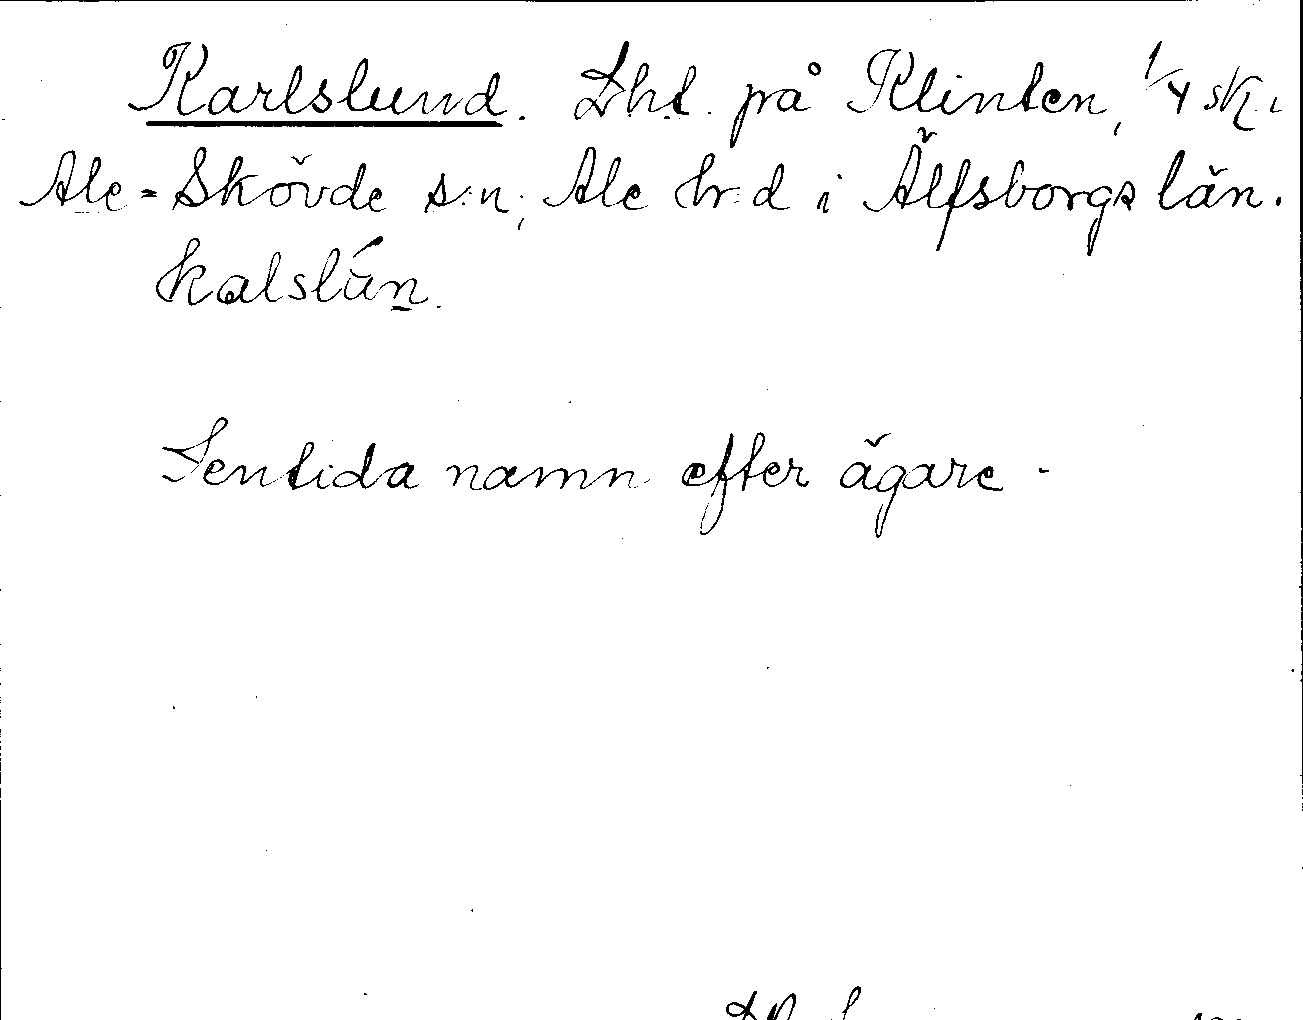 Karlslund. Lht. på Klinten, 1/4 sk.
Ale-Skövde s:n, Ale hr:d i Älfsborgs län.
kalslún.
Sentida namn efter ägare.